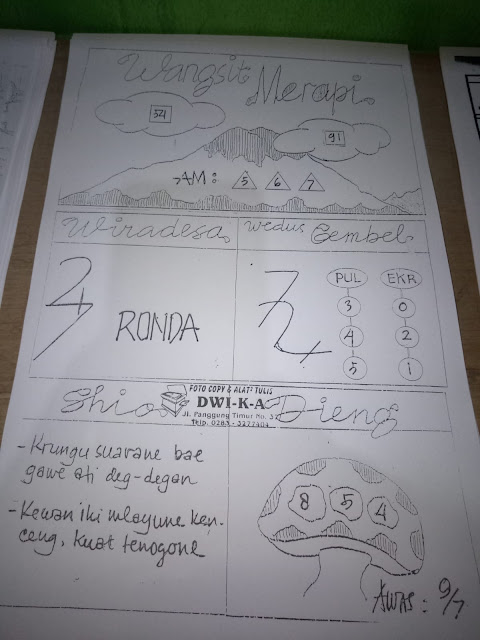 Wangsit Merapi
54
91
AM : 5 6 7
Wiradesa
Wedus Gembel
RONDA
PUL EKR
3 0
4 2
5 1
FOTO COPY & ALAT² TULIS
DWI-K-A
Jl. Panggung Timur No. 37
Telp. 0283 - 3277404
Shio
Dieng
- Krungu suarane bae
gawe ati deg-degan
- Kewan iki mlayune ken-
ceng, kuat tenogone
8 5 4
AWAS : 9/7